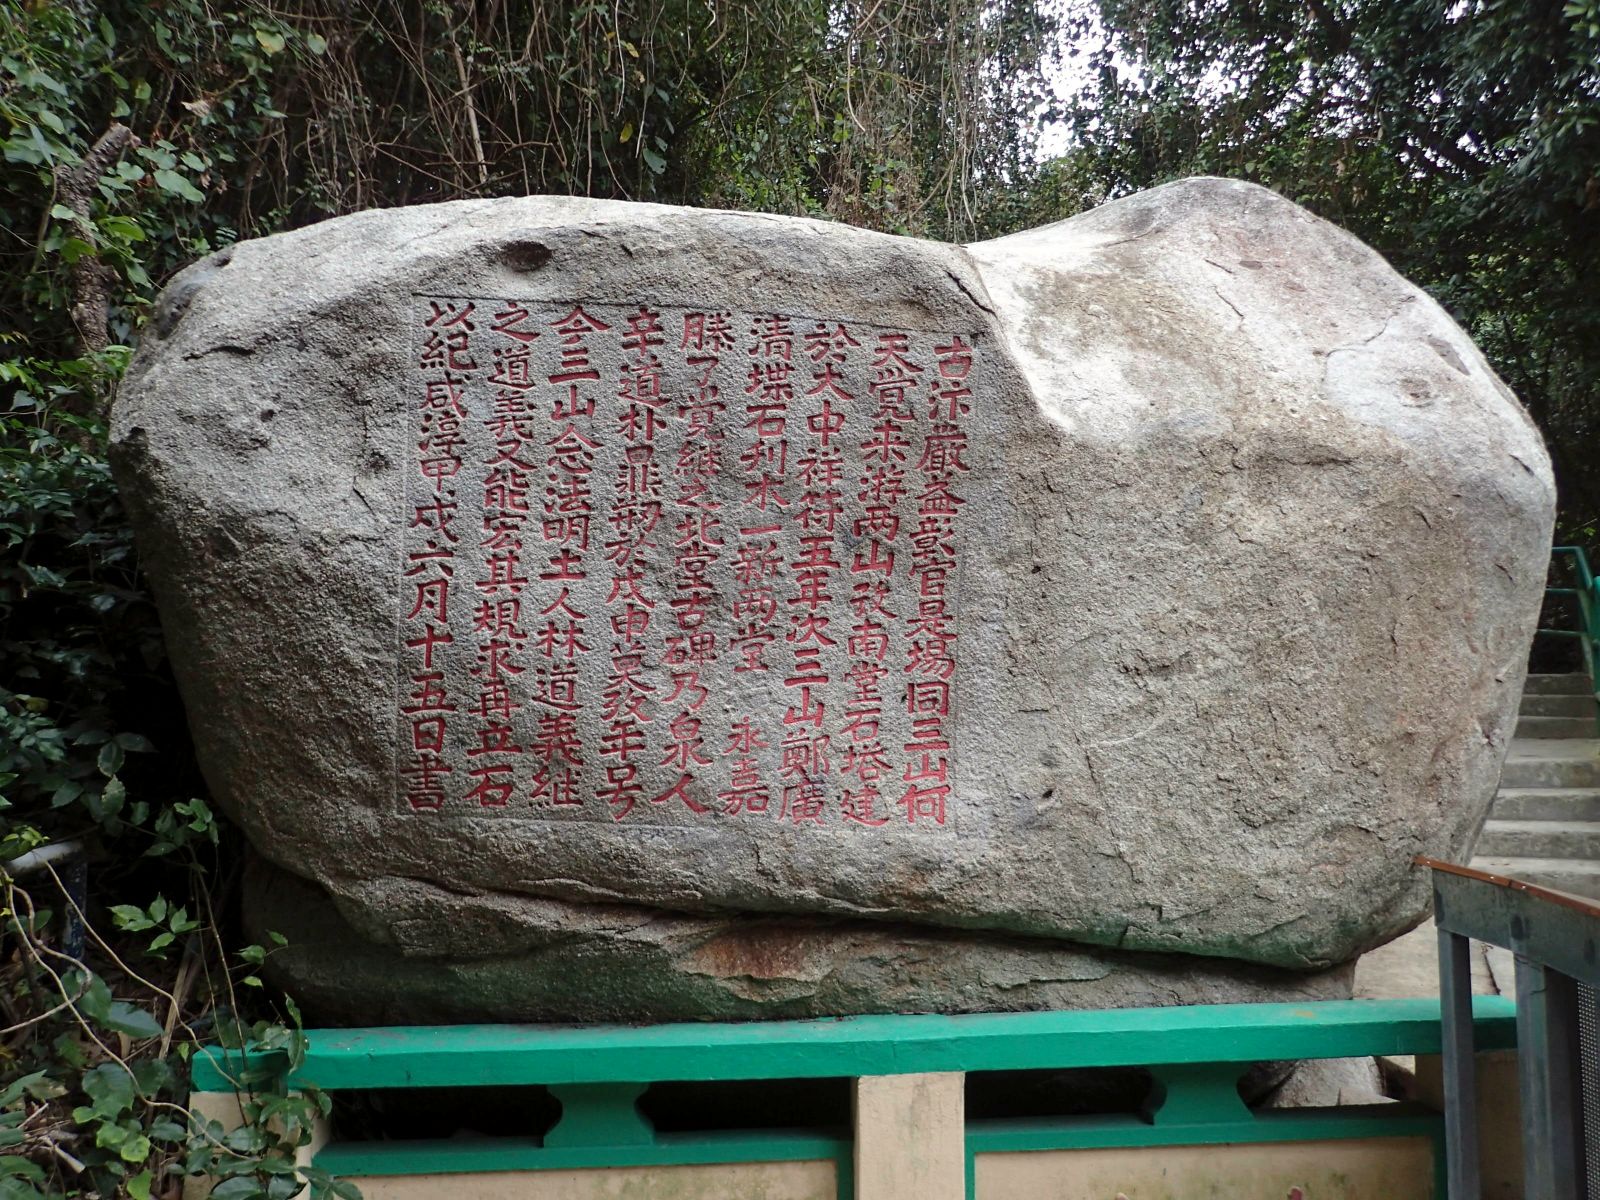 古汴嚴益彰官是塲同三山何
天覺来游两山攷南堂石塔建
於大中祥符五年次三山鄭廣
清堞石刋木一新两堂永嘉
滕了覺繼之北堂古碑乃泉人
辛道朴鼎刱於戊申莫攷年号
今三山念法明土人林道義継
之道義又能宏其規求再立石
以紀咸淳甲戌六月十五日書